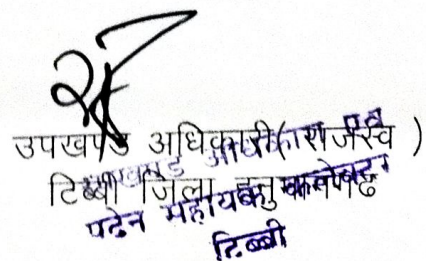 उपखण्ड अधिकारी (राजस्व)
टिब्बी जिला हनुमानगढ
उपखण्ड अधिकारी एवं
पदेन सहायक कलेक्टर
टिब्बी